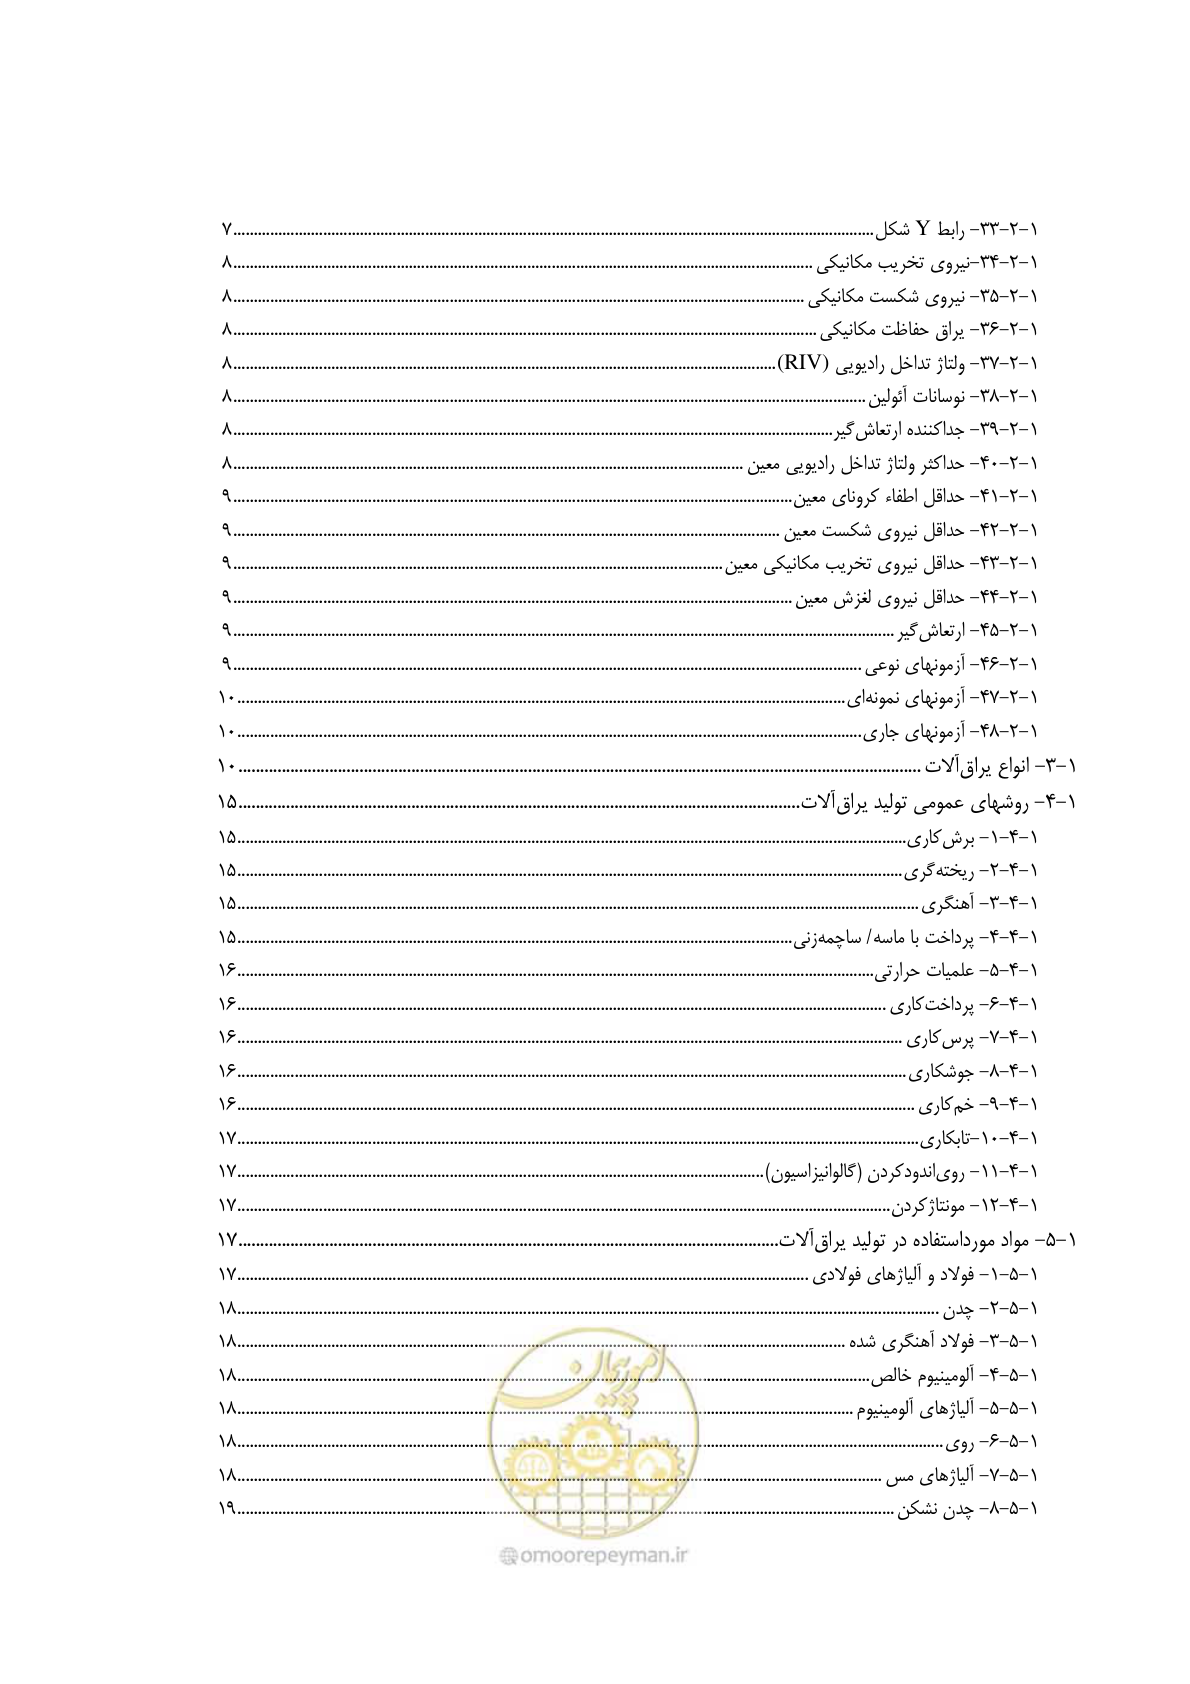 ۱-۲-۳۳- رابط Y شکل........۷
۱-۲-۳۴-نیروی تخریب مکانیکی ........۸
۱-۲-۳۵- نیروی شکست مکانیکی ........۸
۱-۲-۳۶- یراق حفاظت مکانیکی ........۸
۱-۲-۳۷- ولتاژ تداخل رادیویی (RIV)........۸
۱-۲-۳۸- نوسانات آئولین ........۸
۱-۲-۳۹- جداکننده ارتعاش‌گیر........۸
۱-۲-۴۰- حداکثر ولتاژ تداخل رادیویی معین ........۸
۱-۲-۴۱- حداقل اطفاء کرونای معین........۹
۱-۲-۴۲- حداقل نیروی شکست معین ........۹
۱-۲-۴۳- حداقل نیروی تخریب مکانیکی معین........۹
۱-۲-۴۴- حداقل نیروی لغزش معین ........۹
۱-۲-۴۵- ارتعاش‌گیر ........۹
۱-۲-۴۶- آزمونهای نوعی ........۹
۱-۲-۴۷- آزمونهای نمونه‌ای........۱۰
۱-۲-۴۸- آزمونهای جاری........۱۰
۱-۳- انواع یراق‌آلات ........۱۰
۱-۴- روشهای عمومی تولید یراق‌آلات........۱۵
۱-۴-۱- برش‌کاری........۱۵
۱-۴-۲- ریخته‌گری........۱۵
۱-۴-۳- آهنگری ........۱۵
۱-۴-۴- پرداخت با ماسه/ ساچمه‌زنی........۱۵
۱-۴-۵- علمیات حرارتی........۱۶
۱-۴-۶- پرداخت‌کاری ........۱۶
۱-۴-۷- پرس‌کاری ........۱۶
۱-۴-۸- جوشکاری........۱۶
۱-۴-۹- خم‌کاری ........۱۶
۱-۴-۱۰-تابکاری........۱۷
۱-۴-۱۱- روی‌اندودکردن (گالوانیزاسیون)........۱۷
۱-۴-۱۲- مونتاژکردن........۱۷
۱-۵- مواد مورداستفاده در تولید یراق‌آلات........۱۷
۱-۵-۱- فولاد و آلیاژهای فولادی ........۱۷
۱-۵-۲- چدن ........۱۸
۱-۵-۳- فولاد آهنگری شده ........۱۸
۱-۵-۴- آلومینیوم خالص........۱۸
۱-۵-۵- آلیاژهای آلومینیوم ........۱۸
۱-۵-۶- روی........۱۸
۱-۵-۷- آلیاژهای مس ........۱۸
۱-۵-۸- چدن نشکن ........۱۹
امور پیمان
@omoorepeyman.ir